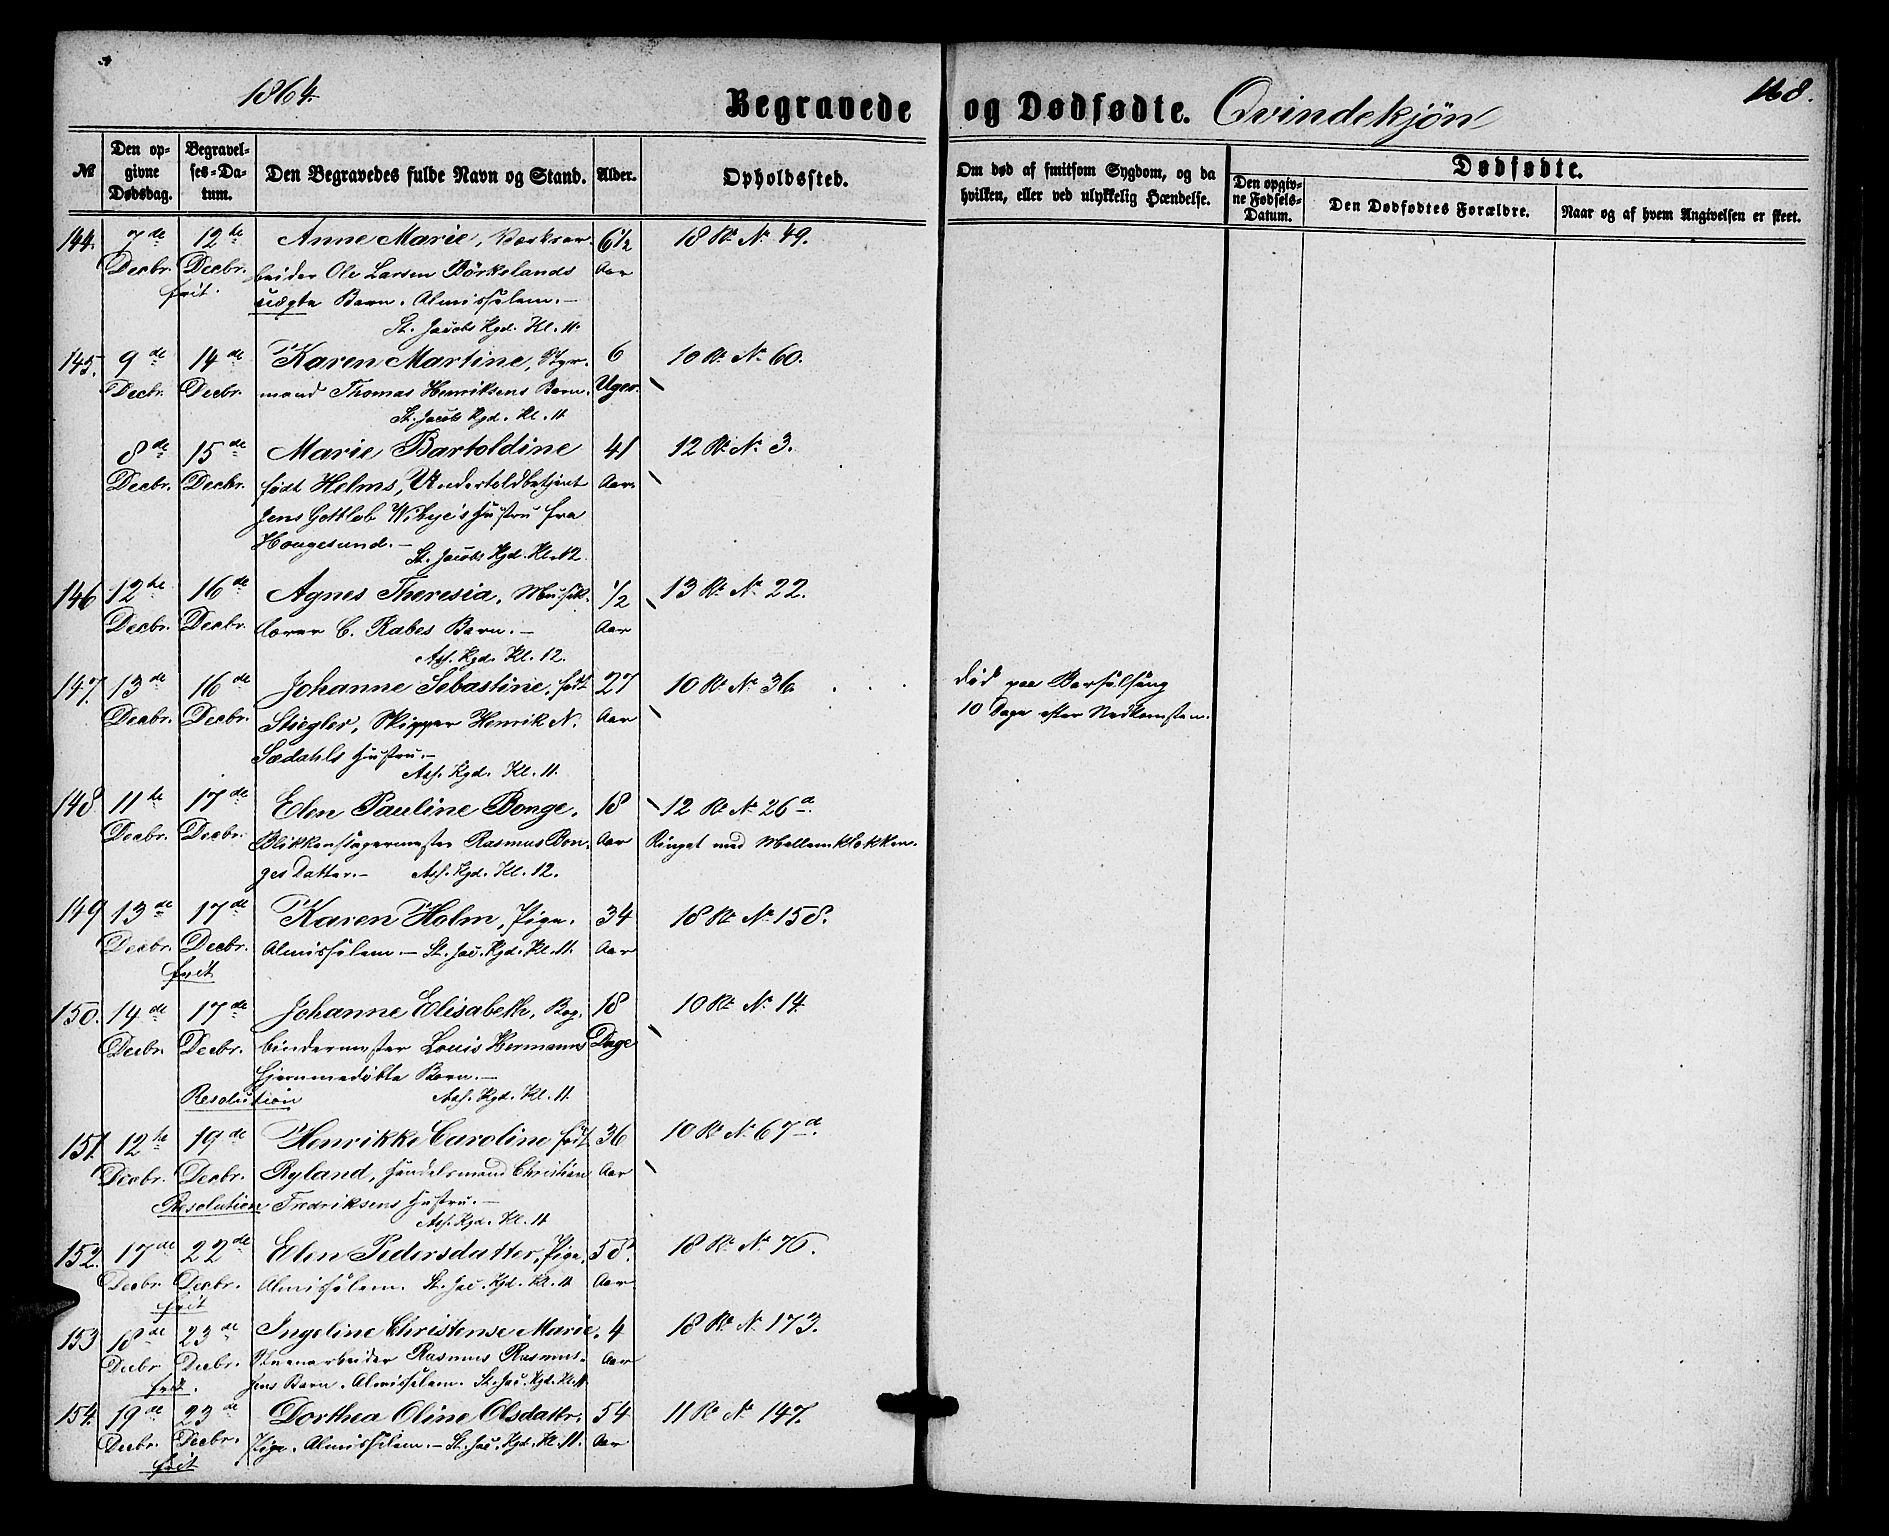 1864.
Begravede og Dødfødte. Qvindekjøn
168.
No
Den opgivne Dødsdag.
Begravelses-Datum.
Den Begravedes fulde Navn og Stand.
Alder.
Opholdssted.
Om død af smitsom Sygdom, og da hvilken, eller ved ulykkelig Hændelse.
Dødfødte.
Den opgivne Fødsels-Datum.
Den Dødfødtes Forældre.
Naar og af hvem Angivelsen er skeet.
144. 7de 12te Anne Marie, Værksar- 6½ 18 Rd No 49.
Decbr. Decbr. beider Ole Larsen Börkelands Aar
frit. uægte Barn. Almisselem.-
St. Jacobs Kgd. Kl. 11.
145. 9de 14de Karen Martine, Styr- 6 10 Rd No 60.
Decbr. Decbr. mand Thomas Henriksens Barn. Uger.
St. Jacobs Kgd. Kl. 11
8de 15de Marie Bartoldine 41 12 Rd No 3.
Decbr. Decbr. født Helms, Undertoldbetjent Aar.
Jens Gottlob Wibye's Hustru fra
Hougesund.-
St. Jacobs Kgd. Kl. 12
146 12te 16de Agnes Theresia, Musik- ½ 13 Rd No 22.
Decbr. Decbr. lærer C. Rabes Barn.- Aar
Ass. Kgd. Kl. 12.
147. 13de 16de Johanne Sebastine, født 27 10 Rd No 36. død paa Barselseng
Decbr. Decbr. Stiegler, Skipper Henrik N. Aar 10 Dage efter Nedkomsten.
Sædahls Hustru.-
Ass. Kgd. Kl. 11.
148 11te 17de Elen Pauline Bonge, 18 12 Rd No 26d
Decbr. Decbr. Blikkenslagermester Rasmus Bon- Aar Ringet med Mellemklokken.
ges Datter.- Ass. Kgd. Kl. 12.
149 13de 17de Karen Holm, Pige. 34 18 Rd No 158.
Decbr. Decbr. Almisselem.- St. Jac. Kgd. Kl. 11. Aar
frit
150. 14de 17de Johanne Elisabeth, Bog- 18 10 Rd No 14
Decbr. Decbr. bindermester Louis Hermanns Dage
hjemmedøbte Barn.-
Resolution Ass. Kgd. Kl. 11
151. 12te 19de Henrikke Caroline født 36 10 Rd No 67d.
Decbr. Decbr. Ryland, Handelsmand Christian Aar
Resolution Fredriksens Hustru.-
Ass. Kgd. Kl. 11
152. 17de 22de Elen Pedersdatter, Pige, 58. 18 Rd No 76.
Decbr. Decbr. Almisselem. St. Jac. Kgd. Kl. 11 Aar
frit
153 18de 23de Ingeline Christense Marie, 4 18 Rd No 173.
Decbr Decbr. Stuenarbeider Rasmus Rasmus- Aar
frit. sens Barn. Almisselem. St. Jac. Kgd. Kl. 11
154. 19de 23de Dorthea Oline Olsdattr, 54 11 Rd No 147.
Decbr. Decbr. Pige. Almisselem.- St. Jac. Kgd. Kl. 11. Aar
frit